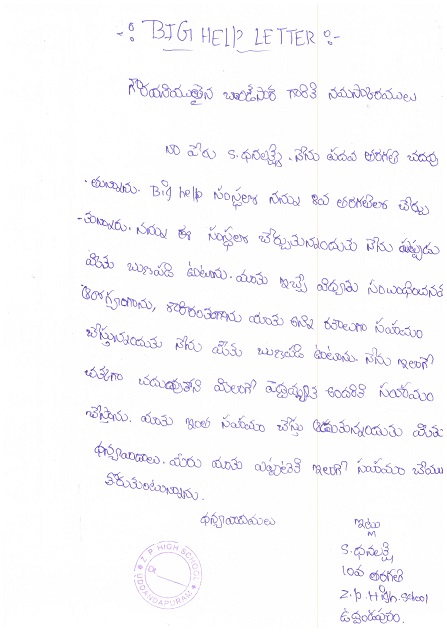 -: BIGI HELP LETTER :-
గౌరవనీయులైన చాంద్‌పాషా గారికి నమస్కారములు
నా పేరు S. ధనలక్ష్మి. నేను పదవ తరగతి చదువు
-తున్నాను. Big help సంస్థలో నన్ను 8వ తరగతిలో చేర్చు
-కున్నారు. నన్ను ఈ సంస్థలో చేర్చుకున్నందుకు నేను ఎప్పుడు
మీకు ఋణపడి ఉంటాను. మాకు ఇచ్చే విద్యకు సంబంధించినవి
ఆరోగ్యంగాను, శారీరకంగాను మాకు అన్ని రకాలుగా సహాయం
చేస్తున్నందుకు నేను మీకు ఋణపడి ఉంటాను. నేను ఇలాగే
చక్కగా చదువుకొని మీలాగే పెద్దయ్యాక అందరికి సహాయం
చేస్తాను. మాకు ఇంత సహాయం చేస్తు ఆదుకున్నందుకు మీకు
ధన్యవాదాలు. మీరు మాకు ఎప్పటికి ఇలాగే సహాయం చేయా
కోరుకుంటున్నాను.
ధన్యవాదములు
ఇట్లు
S. ధనలక్ష్మి
10వ తరగతి
Z.P. High. School
ఉద్దండపురం.
Z P HIGH SCHOOL
UDDANDAPURAM